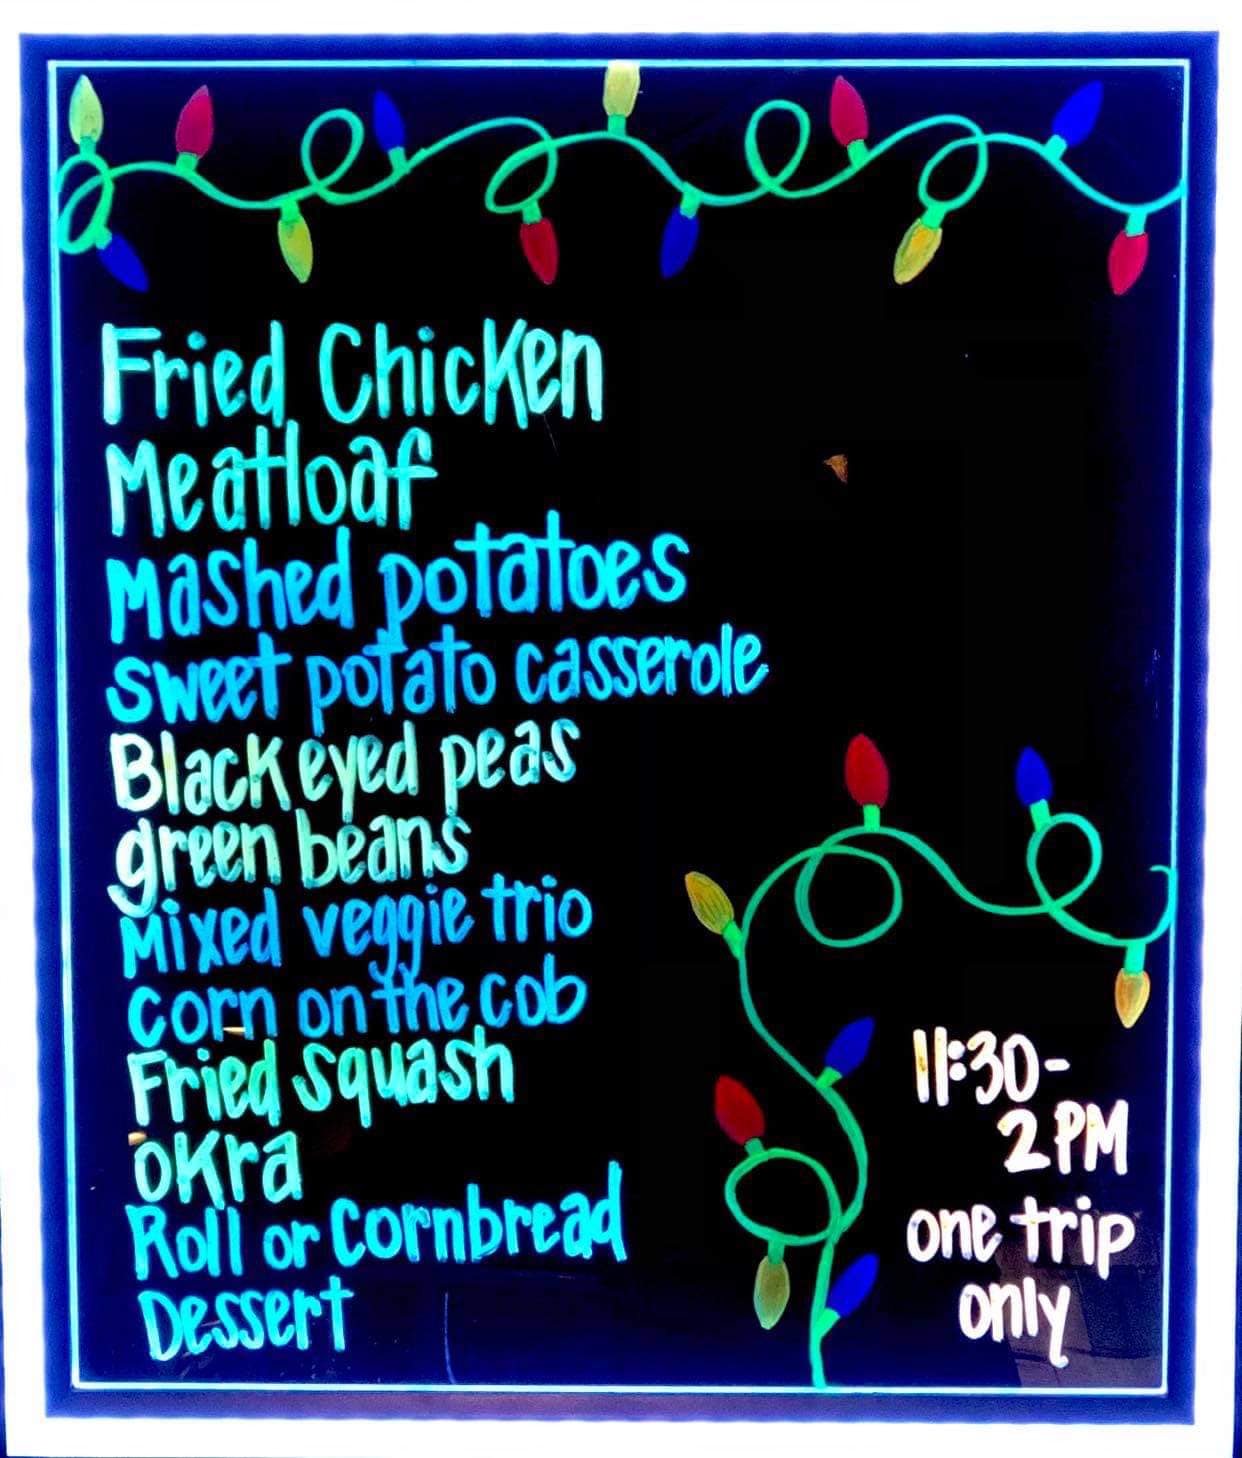 Fried Chicken
Meatloaf
Mashed potatoes
sweet potato casserole
Blackeyed peas
green beans
Mixed veggie trio
corn on the cob
Fried squash
okra
Roll or Cornbread
Dessert
11:30-
2PM
one trip
only